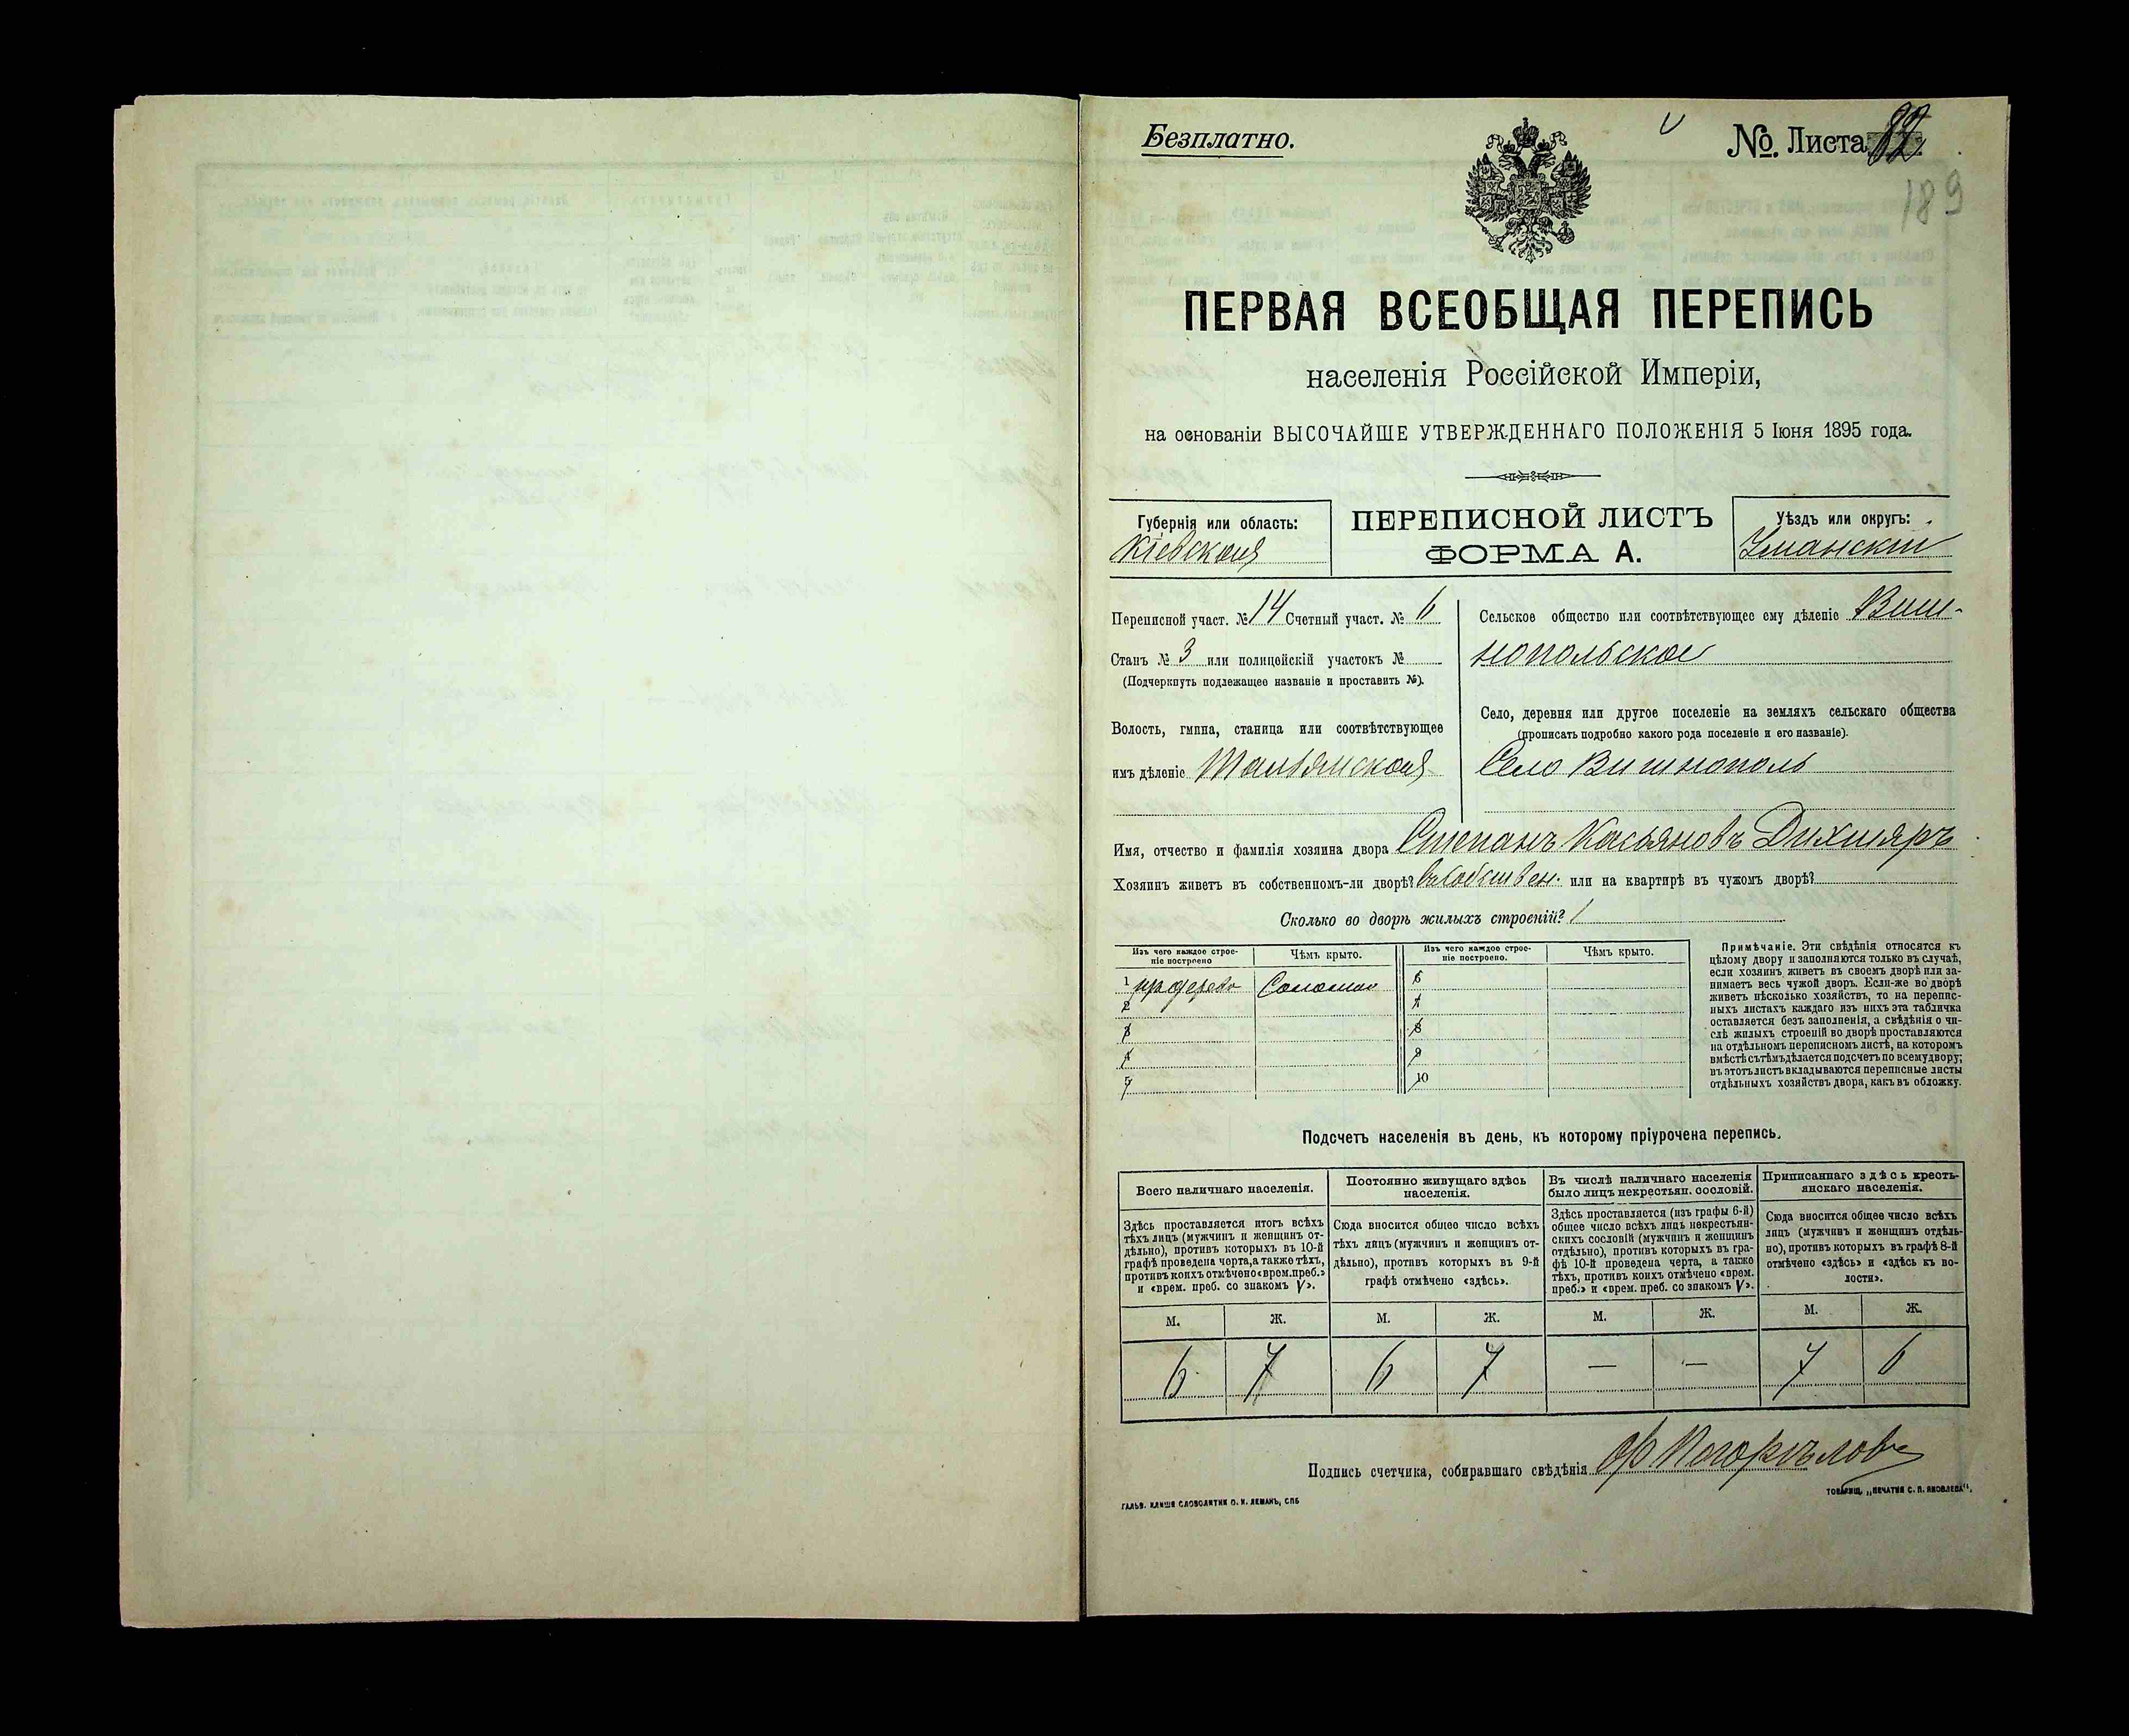 Безплатно.
№. Листа
189
ПЕРВАЯ ВСЕОБЩАЯ ПЕРЕПИСЬ
населенія Россійской Имперіи,
на основаніи ВЫСОЧАЙШЕ УТВЕРЖДЕННАГО ПОЛОЖЕНІЯ 5 Іюня 1895 года.
Губернія или область:
Кіевская
ПЕРЕПИСНОЙ ЛИСТЪ
ФОРМА А.
Уѣздъ или округъ:
Уманскій
Переписной участ. № 14 Счетный участ. № 6
Станъ № 3 или полицейскій участокъ №
(Подчеркнуть подлежащее названіе и проставить №).
Волость, гмина, станица или соотвѣтствующее
имъ дѣленіе Тальянская
Сельское общество или соотвѣтствующее ему дѣленіе Виш-
нопольское
Село, деревня или другое поселеніе на земляхъ сельскаго общества
(прописать подробно какого рода поселеніе и его названіе).
Село Вишнополь
Имя, отчество и фамилія хозяина двора Степанъ Касьяновъ Дихтяръ
Хозяинъ живетъ въ собственномъ-ли дворѣ? въ собствен. или на квартирѣ въ чужомъ дворѣ?
Сколько во дворѣ жилыхъ строеній? 1
Изъ чего каждое строе-
ніе построено
Чѣмъ крыто.
Изъ чего каждое строе-
ніе построено.
Чѣмъ крыто.
1 дерево Соломою 6
2 7
3 8
4 9
5 10
Примѣчаніе. Эти свѣдѣнія относятся къ
цѣлому двору и заполняются только въ случаѣ,
если хозяинъ живетъ въ своемъ дворѣ или за-
нимаетъ весь чужой дворъ. Если-же во дворѣ
живетъ нѣсколько хозяйствъ, то на перепис-
ныхъ листахъ каждаго изъ нихъ эта табличка
оставляется безъ заполненія, а свѣдѣнія о чи-
слѣ жилыхъ строеній во дворѣ проставляются
на отдѣльномъ переписномъ листѣ, на которомъ
вмѣстѣ съ тѣмъ дѣлается подсчетъ по всему двору;
въ этотъ листъ вкладываются переписные листы
отдѣльныхъ хозяйствъ двора, какъ въ обложку.
Подсчетъ населенія въ день, къ которому пріурочена перепись.
Всего наличнаго населенія.
Здѣсь проставляется итогъ всѣхъ
тѣхъ лицъ (мужчинъ и женщинъ от-
дѣльно), противъ которыхъ въ 10-й
графѣ проведена черта, а также тѣхъ,
противъ коихъ отмѣчено «врем. преб.»
и «врем. преб. со знакомъ V».
Постоянно живущаго здѣсь
населенія.
Сюда вносится общее число всѣхъ
тѣхъ лицъ (мужчинъ и женщинъ от-
дѣльно), противъ которыхъ въ 9-й
графѣ отмѣчено «здѣсь».
Въ числѣ наличнаго населенія
было лицъ некрестьян. сословій.
Здѣсь проставляется (изъ графы 6-й)
общее число всѣхъ лицъ некрестьян-
скихъ сословій (мужчинъ и женщинъ
отдѣльно), противъ которыхъ въ гра-
фѣ 10-й проведена черта, а также
тѣхъ, противъ коихъ отмѣчено «врем.
преб.» и «врем. преб. со знакомъ V».
Приписаннаго здѣсь кресть-
янскаго населенія.
Сюда вносится общее число всѣхъ
лицъ (мужчинъ и женщинъ отдѣль-
но), противъ которыхъ въ графѣ 8-й
отмѣчено «здѣсь» и «здѣсь къ во-
лости».
М. Ж. М. Ж. М. Ж. М. Ж.
6 7 6 7 — — 7 6
Подпись счетчика, собиравшаго свѣдѣнія Погорѣловъ
ГАЛЬВ. КЛИШЕ СЛОВОЛИТНИ О. И. ЛЕМАНЪ, СПБ
ТОВАРИЩ. „ПЕЧАТНЯ С. П. ЯКОВЛЕВА".